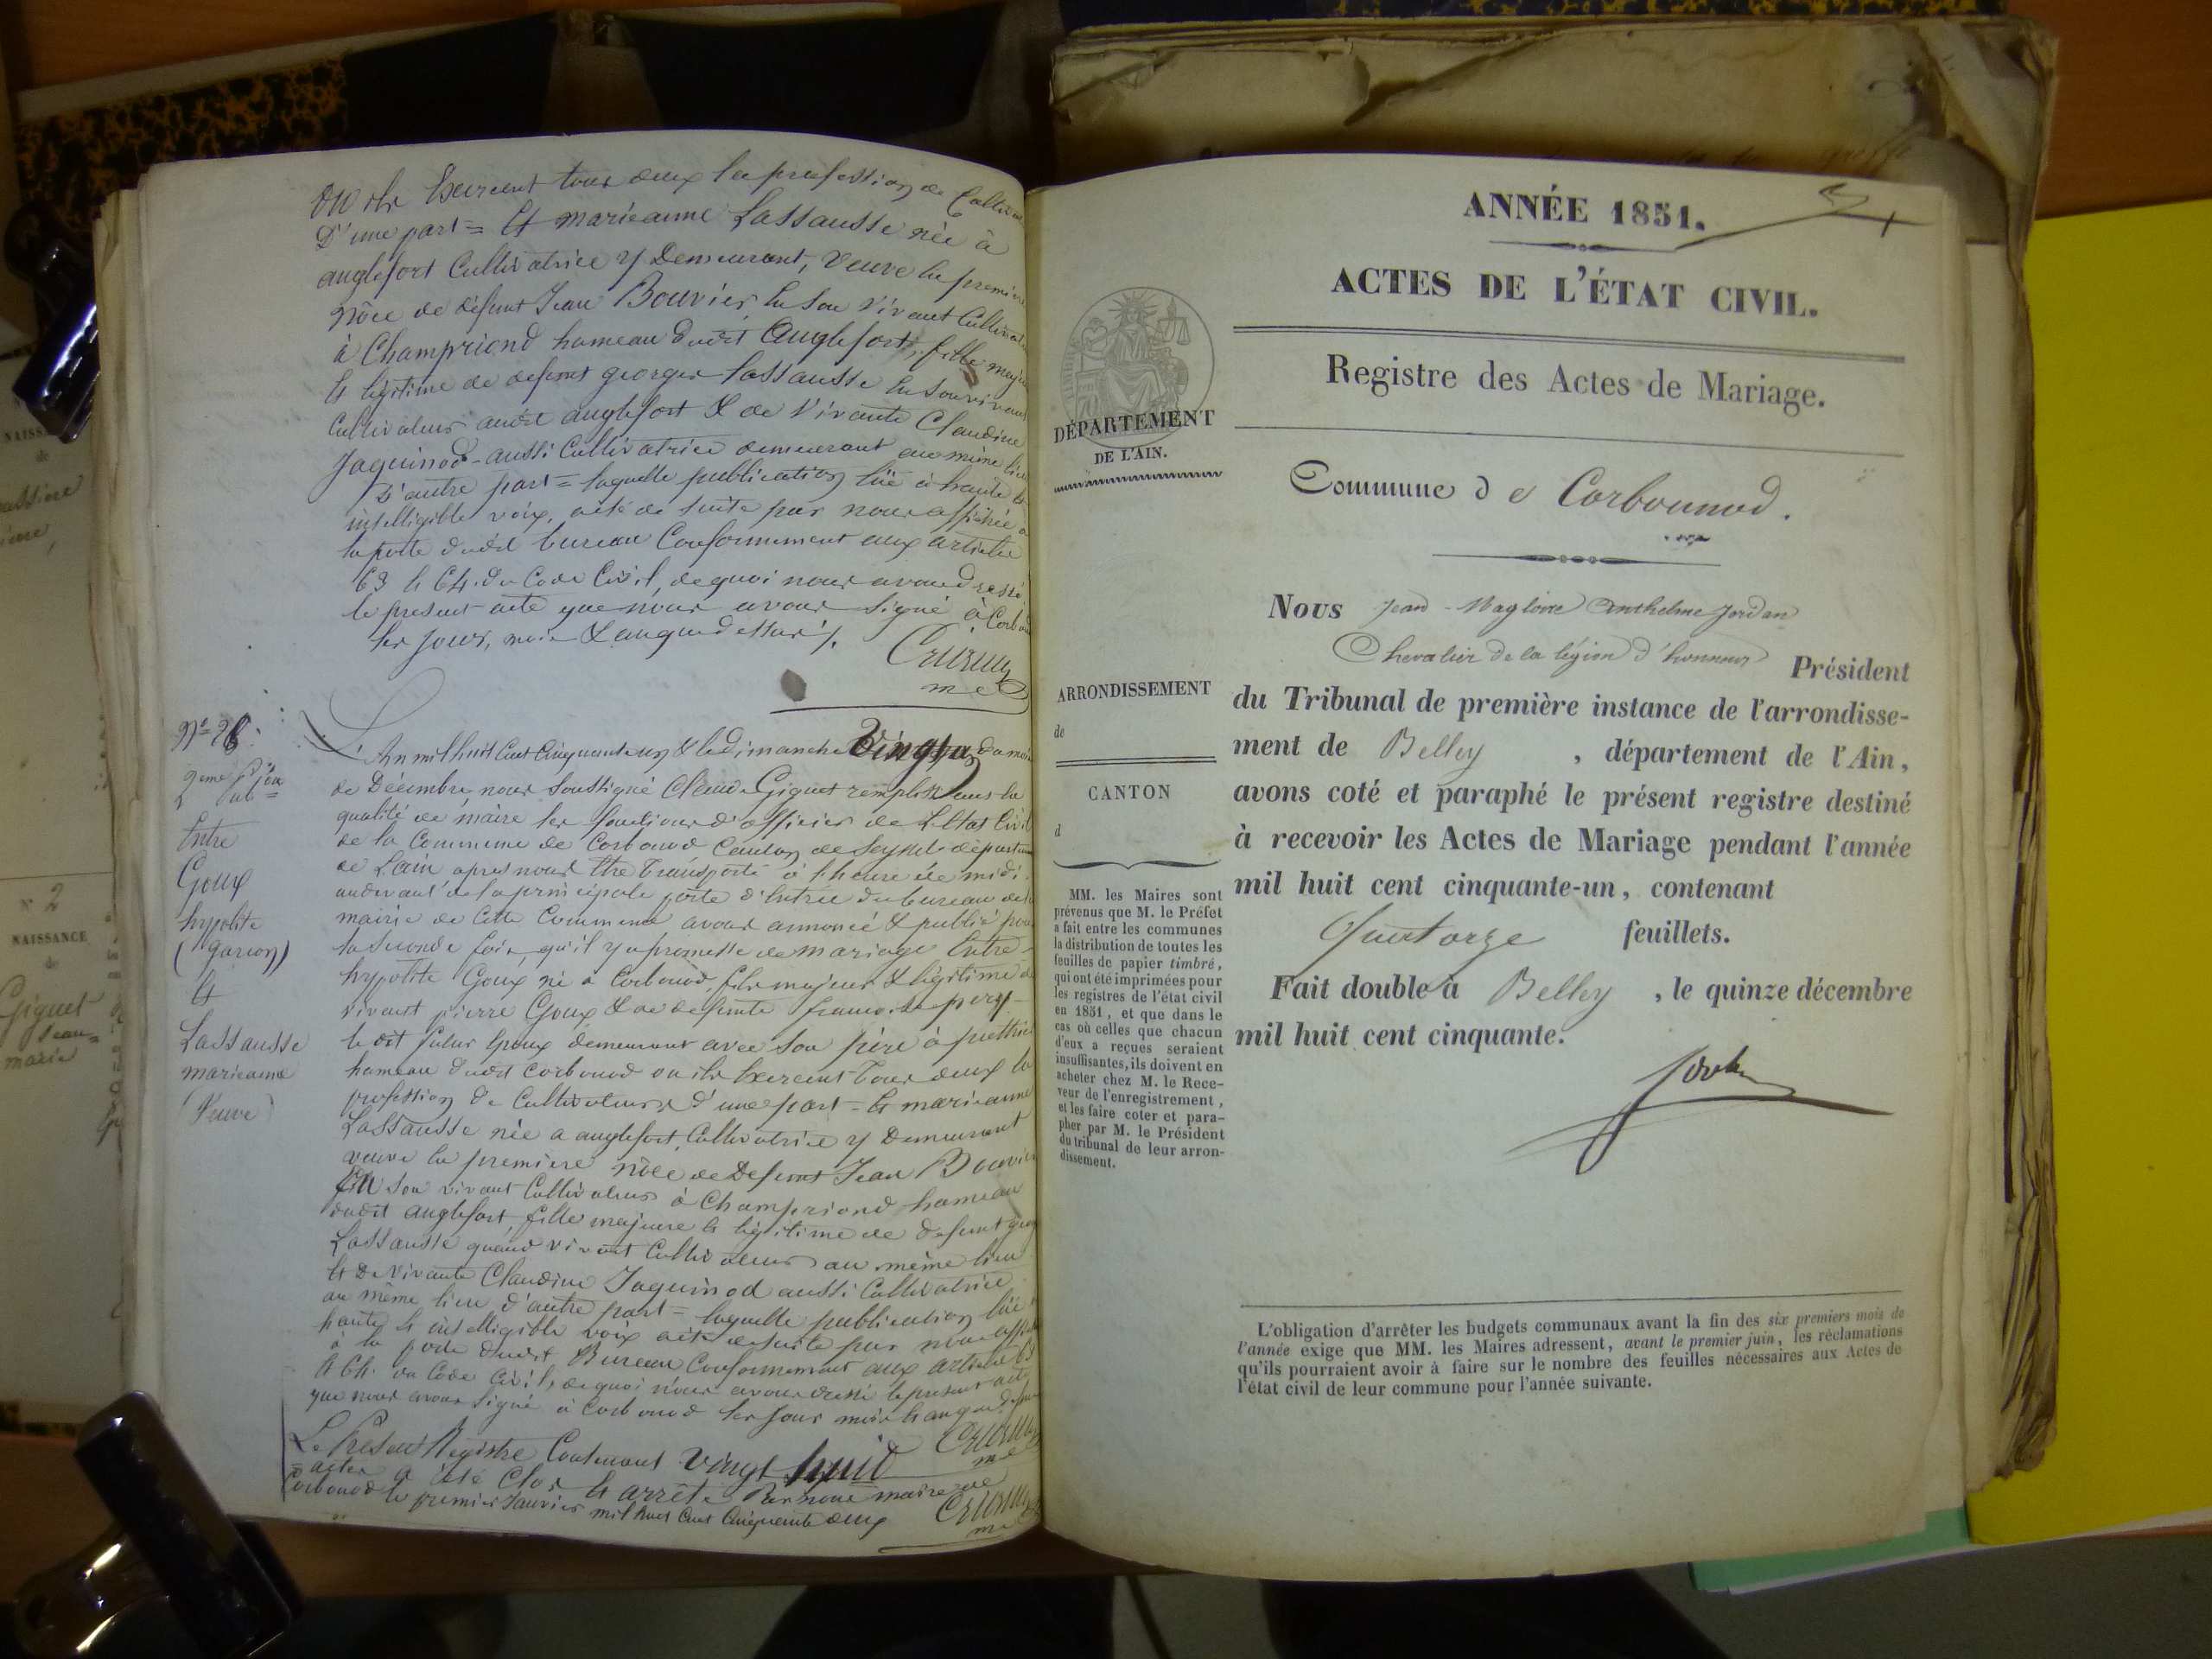 où ils Exercent tous deux la profession de Cultiv
D'une part = Et marieanne Lassausse née à
anglefort Cultivatrice y Demeurant, Veuve En premiere
nôce de défunt Jean Bouvier, En son vivant Cultivat
à Champriond hameau dudit Anglefort, fille maj
Et légitime de defunt georges Lassausse En son vivant
Cultivateur audit anglefort & de Vivante Claudine
Jaquinod aussi Cultivatrice demeurant au même lieu
D'autre part = laquelle publication lüe à haute &
intelligible voix, a été de suite par nous affichée à
la porte dudit bureau Conformement aux articles
63 & 64. du Code Civil, de quoi nous avons dressé
le present acte que nous avons signé à Corbo
les jour, mois & an que dessus ./.
N° 28
2eme Pub.on
Entre
Goux
hypolite
(garçon)
Et
Lassausse
marieanne
(Veuve)
L'An mil huit Cent Cinquante un & le dimanche Vingt un du mois
de Décembre, nous soussigné Claude Giguet remplissant En
qualité de maire les fonctions d'officier de L'Etat Civil
de la Commune de Corbonod Canton de Seyssel departem
de L'ain apres nous Etre transporté à l'heure de midi
audevant de la principale porte d'Entrée du bureau de la
mairie de Cette Commune avons annoncé & publié pour
la seconde fois, qu'il y a promesse de mariage Entre
hypolite Goux né à Corbonod, fils majeur & légitime de
vivant pierre Goux & de defunte françoise
le dit futur Epoux demeurant avec son père à
hameau dudit Corbonod ou ils Exercent tous deux la
profession de Cultivateurs d'une part = Et marieanne
Lassausse née a anglefort, Cultivatrice y Demeurant
veuve En premiere nôce de Defunt Jean Bouvier
En son vivant Cultivateur à Champriond hameau
dudit anglefort, fille majeure & légitime de defunt
Lassausse quand vivant Cultivateur au même lieu
Et De Vivante Claudine Jaquinod aussi Cultivatrice
au même lieu d'autre part = laquelle publication lüe
haute & intelligible voix a été de suite par nous
à la porte dudit Bureau Conformement aux articles 63
& 64. du Code Civil, de quoi nous avons dressé le present acte
que nous avons signé à Corbonod les jour mois & an que
Le Present Registre Contenant Vingt huit
actes a été Clos & arrêté Par nous maire de
Corbonod le premier Janvier mil huit Cent Cinquante deux
NAISSANCE
N° 2
NAISSANCE
de
Giguet
Jean=
marie
ANNÉE 1851.
ACTES DE L'ÉTAT CIVIL.
Registre des Actes de Mariage.
DÉPARTEMENT
DE L'AIN.
Commune de Corbounod.
ARRONDISSEMENT
de
CANTON
d
MM. les Maires sont
prévenus que M. le Préfet
a fait entre les communes
la distribution de toutes les
feuilles de papier timbré,
qui ont été imprimées pour
les registres de l'état civil
en 1851, et que dans le
cas où celles que chacun
d'eux a reçues seraient
insuffisantes, ils doivent en
acheter chez M. le Rece-
veur de l'enregistrement,
et les faire coter et para-
pher par M. le Président
du tribunal de leur arron-
dissement.
Nous Jean-Magloire Anthelme Jordan
Chevalier de la légion d'honneur Président
du Tribunal de première instance de l'arrondisse-
ment de Belley, département de l'Ain,
avons coté et paraphé le présent registre destiné
à recevoir les Actes de Mariage pendant l'année
mil huit cent cinquante-un, contenant
Quatorze feuillets.
Fait double à Belley, le quinze décembre
mil huit cent cinquante.
L'obligation d'arrêter les budgets communaux avant la fin des six premiers mois de
l'année exige que MM. les Maires adressent, avant le premier juin, les réclamations
qu'ils pourraient avoir à faire sur le nombre des feuilles nécessaires aux Actes de
l'état civil de leur commune pour l'année suivante.